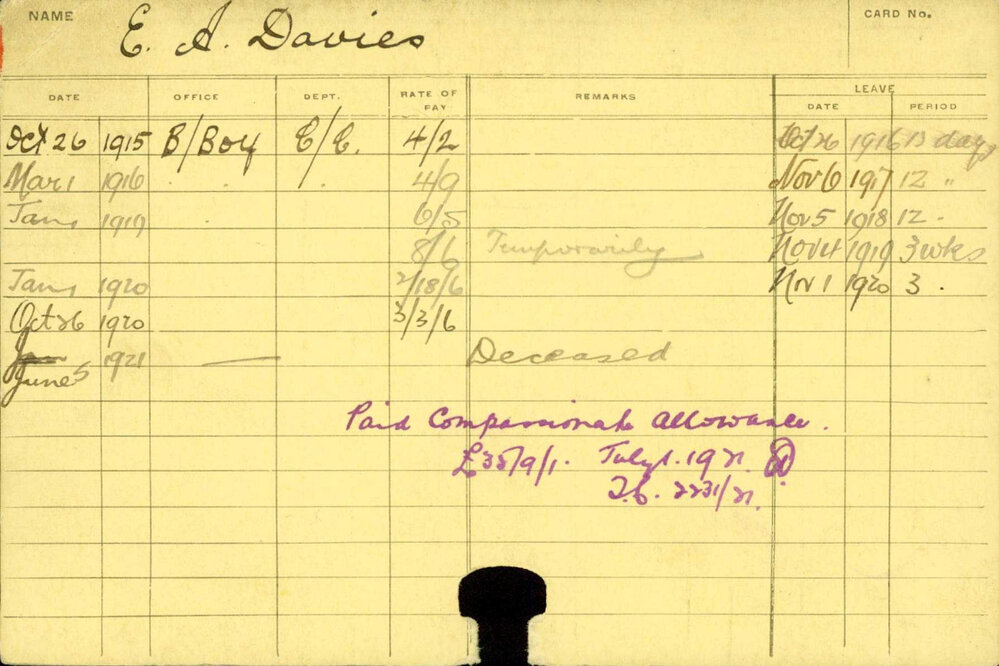 NAME E. A. Davies CARD No.
DATE OFFICE DEPT. RATE OF PAY REMARKS LEAVE DATE PERIOD
Oct 26 1915 B/Boy C/C. 4/2 Oct 26 1916 13 days
Mar 1 1916 . . . 4/9 Nov 6 1917 12 "
Jan 1 1919 . 6/5 Nov 5 1918 12 .
8/6 Temporarily Nov 4 1919 3 wks
Jan 1 1920 2/18/6 Nov 1 1920 3 .
Oct 26 1920 3/3/6
Jan 1921 — Deceased
June 5
Paid Compassionate Allowance.
£35/9/1. July 1. 1921.
2231/21.